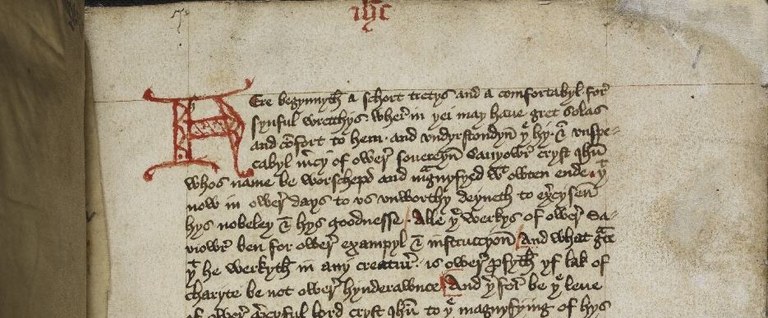 ihc
Here begynnyth a schort tretys and a comfortabyl for
synful wrecchys. wherin þei may haue gret solas
and cōfort to hem. and vndyrstondyn þe hy. & vnspe-
cabyl m̄cy of ower souereyn Sauyowr cryst ihū
whos name be worschepd and magnyfyed wtowten ende. þt
now in ower days to vs vnworthy deyneth to exercysen
hys nobeley & hys goodnesse. Alle þe werkys of ower Sa-
viowr ben for ower exampyl & instruccyon. And what grace
þt he werkyth in any creatur. is ower profyth yf lak of
charyte be not ower hynderawnce. And þerfor be þe leue
of ower mercyful lord cryst ihū to þe magnyfying of hys